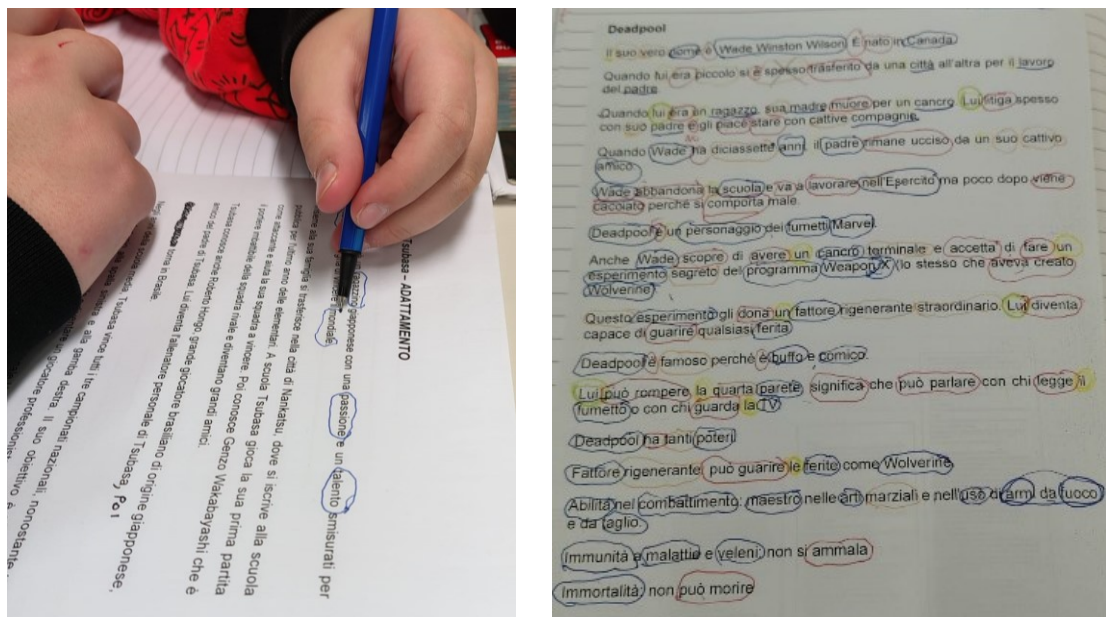 Tsubasa - ADATTAMENTO
giapponese con una passione e un talento smisurati per
mondiale.
alla sua famiglia si trasferisce nella città di Nankatsu, dove si iscrive alla scuola
pubblica per l'ultimo anno delle elementari. A scuola Tsubasa gioca la sua prima partita
come attaccante e aiuta la sua squadra a vincere. Poi conosce Genzo Wakabayashi che è
il portiere imbattibile della squadra rivale e diventano grandi amici.
Tsubasa conosce anche Roberto Hongo, grande giocatore brasiliano di origine giapponese,
amico del padre di Tsubasa. Lui diventa l'allenatore personale di Tsubasa, Poi
torna in Brasile
della scuola media Tsubasa vince tutti i tre campionati nazionali, nonostante
alla spalla sinistra e alla gamba destra. Il suo obiettivo è
un giocatore professionista
Deadpool
Il suo vero nome è Wade Winston Wilson. È nato in Canada.
Quando lui era piccolo si è spesso trasferito da una città all'altra per il lavoro
del padre.
Quando lui era un ragazzo, sua madre muore per un cancro. Lui litiga spesso
con suo padre e gli piace stare con cattive compagnie.
Quando Wade ha diciassette anni, il padre rimane ucciso da un suo cattivo
amico.
Wade abbandona la scuola e va a lavorare nell'Esercito ma poco dopo viene
cacciato perché si comporta male.
Deadpool è un personaggio dei fumetti Marvel.
Anche Wade scopre di avere un cancro terminale e accetta di fare un
esperimento segreto del programma Weapon X (lo stesso che aveva creato
Wolverine)
Questo esperimento gli dona un fattore rigenerante straordinario. Lui diventa
capace di guarire qualsiasi ferita.
Deadpool è famoso perché è buffo e comico.
Lui può rompere la quarta parete, significa che può parlare con chi legge il
fumetto o con chi guarda la TV.
Deadpool ha tanti poteri!
Fattore rigenerante: può guarire le ferite come Wolverine
Abilità nel combattimento: maestro nelle arti marziali e nell'uso di armi da fuoco
e da taglio.
Immunità a malattie e veleni: non si ammala
Immortalità: non può morire